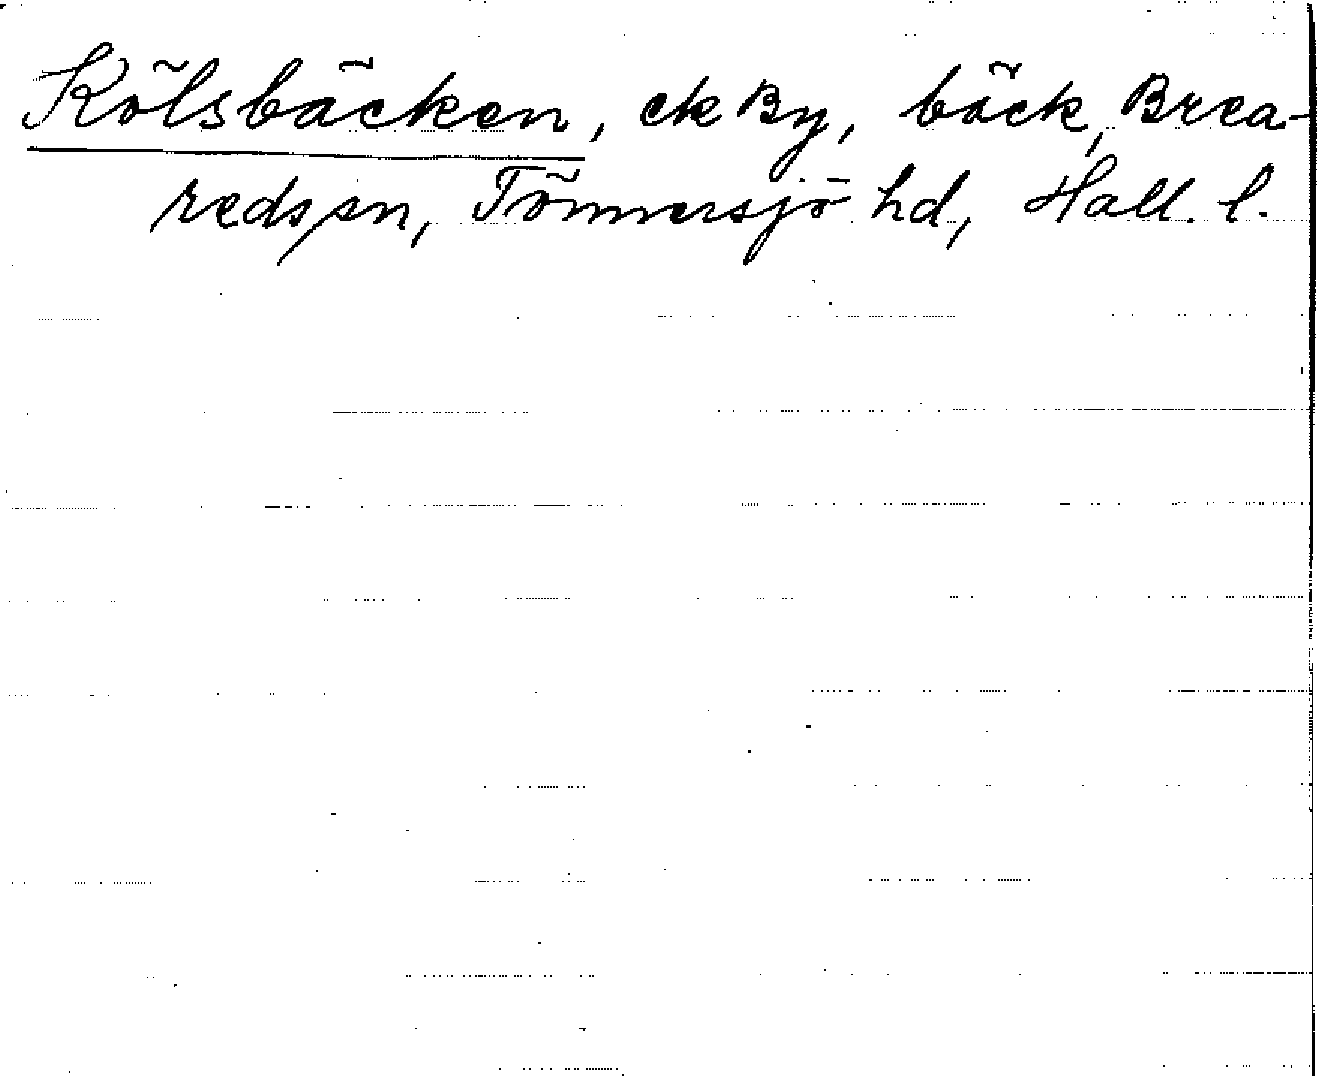 Kölsbäcken, ek By, bäck, Brea-
reds sn, Tönnersjö hd, Hall. l.